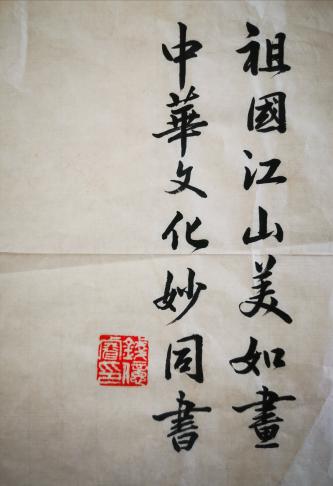 祖國江山美如畫
中華文化妙同書